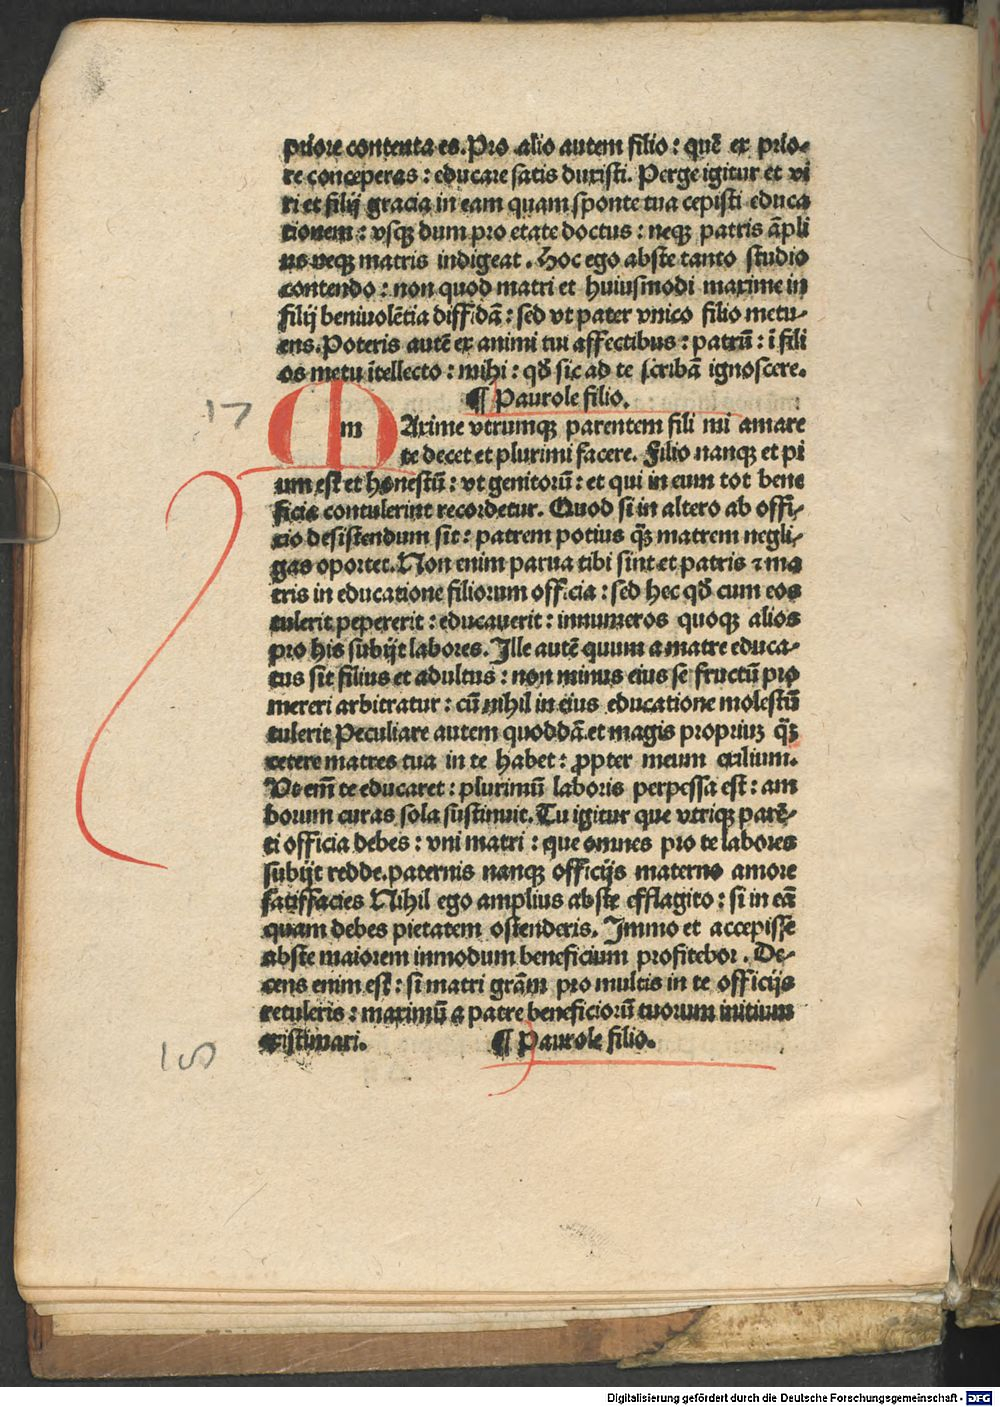 priore contenta es. Pro alio autem filio : quē ex prio-
re conceperas : educare satis duxisti. Perge igitur et vi
ri et filij gracia in eam quam sponte tua cepisti educa
tionem : vsqꝫ dum pro etate doctus : neqꝫ patris āpli
us neqꝫ matris indigeat. Hoc ego abste tanto studio
contendo : non quod matri et huiusmodi maxime in
filij beniuolētia diffidā : sed vt pater vnico filio metu-
ens. Poteris autē ex animi tui affectibus : patrū : ī fili
os metu ītellecto : mihi : qđ sic ad te scribā ignoscere.
¶ Paurole filio.
17
m Axime vtrumqꝫ parentem fili mi amare
te decet et plurimi facere. Filio nanqꝫ et pi
um est et honestū : vt genitorū : et qui in eum tot bene
ficia contulerint recordetur. Quod si in altero ab offi-
cio desistendum sit : patrem potius qꝫ̄ matrem negli-
gas oportet. Non enim parua tibi sint et patris ⁊ ma
tris in educatione filiorum officia : sed hec qđ cum eos
tulerit pepererit : educauerit : innumeros quoqꝫ alios
pro his subijt labores. Ille autē quum a matre educa-
tus sit filius et adultus : non minus eius se fructū pro
mereri arbitratur : cū nihil in eius educatione molestū
tulerit Peculiare autem quoddā et magis propriuꝫ qꝫ̄
cetere matres tua in te habet : ꝓpter meum exilium.
Vt em̄ te educaret : plurimū laboris perpessa est : am
borum curas sola sustinuit. Tu igitur que vtriqꝫ parē-
ti officia debes : vni matri : que omnes pro te labores
subijt redde. paternis nanqꝫ officijs materno amore
satisfacies Nihil ego amplius abste efflagito : si in eā
quam debes pietatem ostenderis. Immo et accepisse
abste maiorem inmodum beneficium profitebor. De-
cens enim est : si matri grām pro multis in te officijs
retuleris : maximū a patre beneficiorū tuorum initium
existimari. ¶ Paurole filio.
18
Digitalisierung gefördert durch die Deutsche Forschungsgemeinschaft - DFG